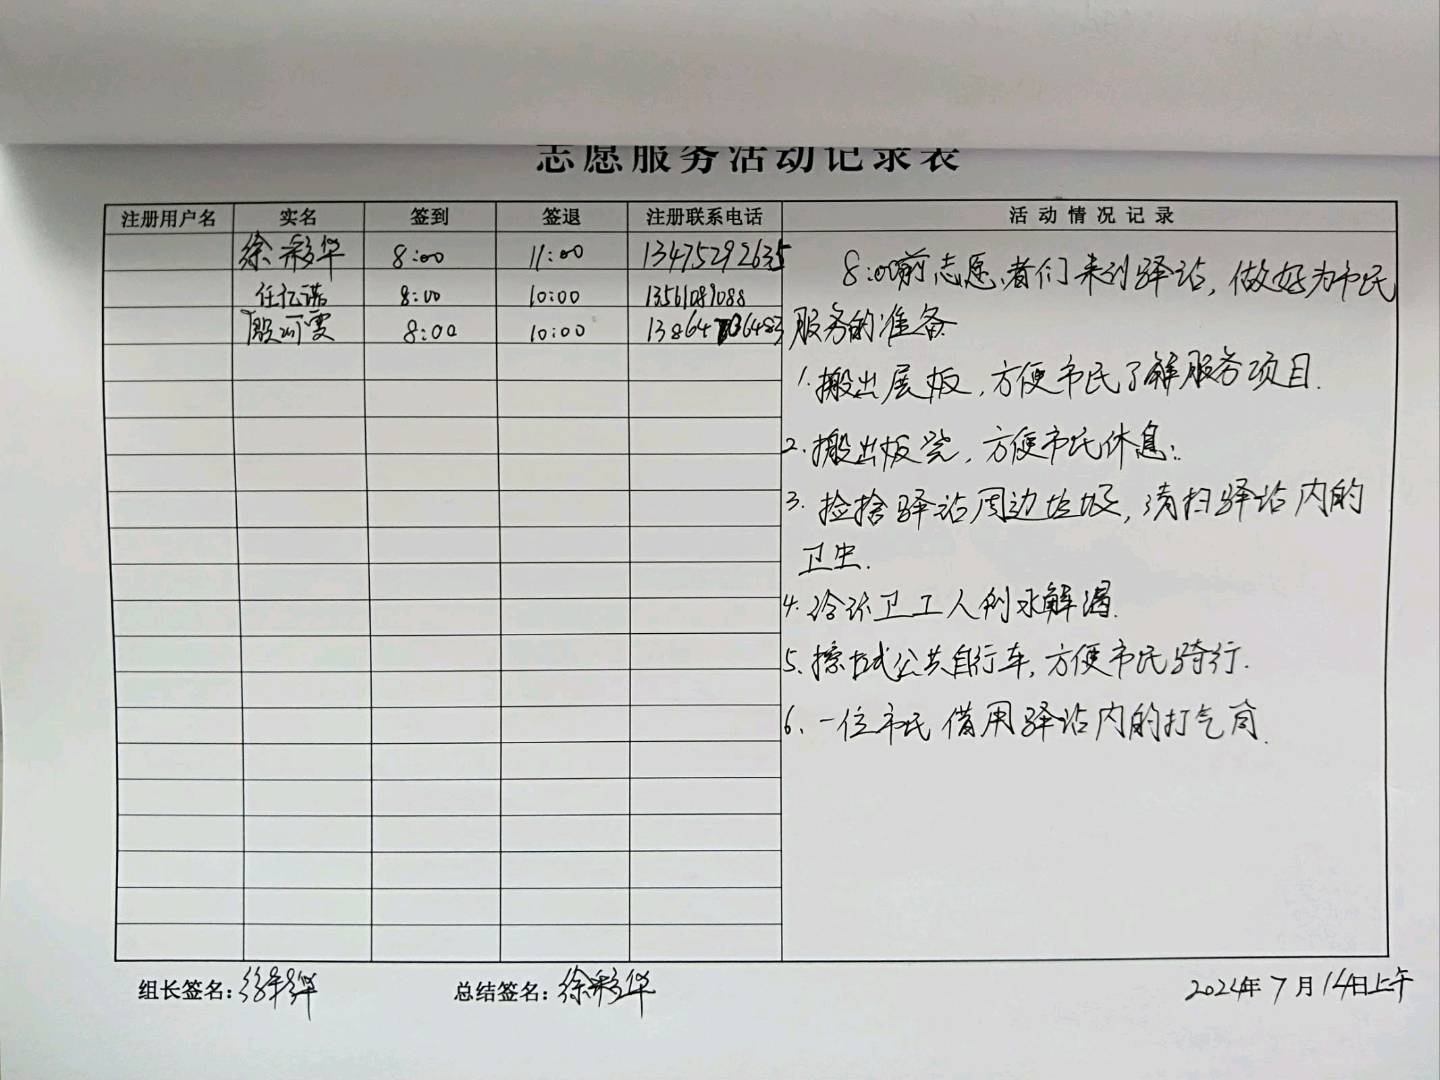 志愿服务活动记录表
注册用户名 实名 签到 签退 注册联系电话 活动情况记录
徐彩华 8:00 11:00 13475292635
任忆诺 8:00 10:00 13561089088
殷可雯 8:00 10:00 13864736483
8:00前志愿者们来到驿站,做好为市民
服务的准备
1.搬出展板,方便市民了解服务项目.
2.搬出板凳,方便市民休息;
3.捡拾驿站周边垃圾,清扫驿站内的
卫生.
4.给环卫工人倒水解渴.
5.擦拭公共自行车,方便市民骑行.
6、一位市民借用驿站内的打气筒.
组长签名:徐彩华 总结签名:徐彩华 2024年7月14日上午